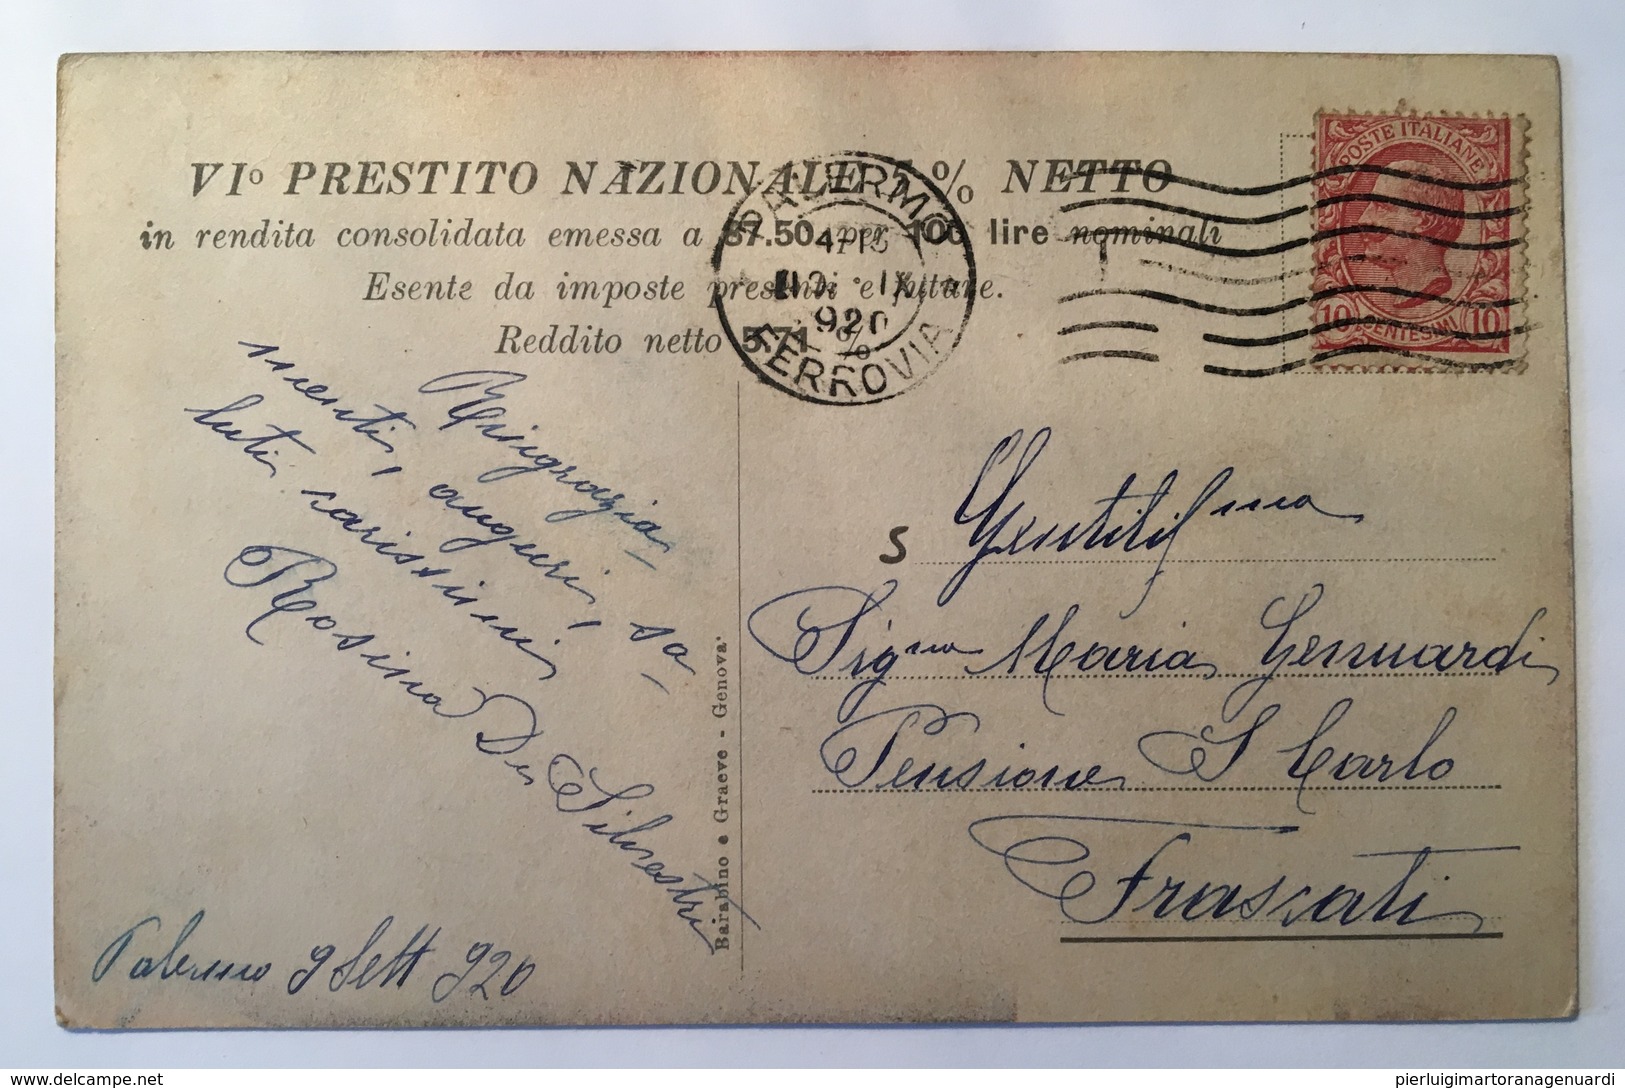 VIº PRESTITO NAZIONALE 5 % NETTO
in rendita consolidata emessa a 87.50 per 100 lire nominali
Esente da imposte presenti e future.
Reddito netto 5.71 %
PALERMO
IX
920
FERROVIA
POSTE ITALIANE
10 CENTESIMI 10
Ringrazia-
menti, auguri, sa-
luti carissimi
Rosina De Silvestri
Palermo 9 Sett 920
Barabino e Graeve - Genova
S
Gentilissma
Signa Maria Genuardi
Pensione S Carlo
Frascati
pierluigimartoranagenuardi